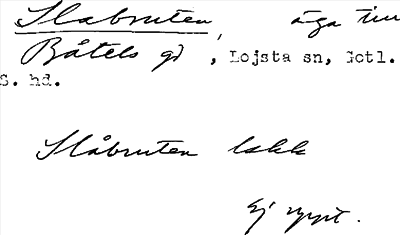 Slabruten, äga till
Båtels gd, Lojsta sn, Gotl.
S. hd.
Slåbruten lokk
Ej